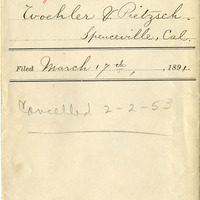 Woehler & Pietzsch.
Spenceville, Cal.
Filed March 17th, 1891.
Cancelled 2-2-53